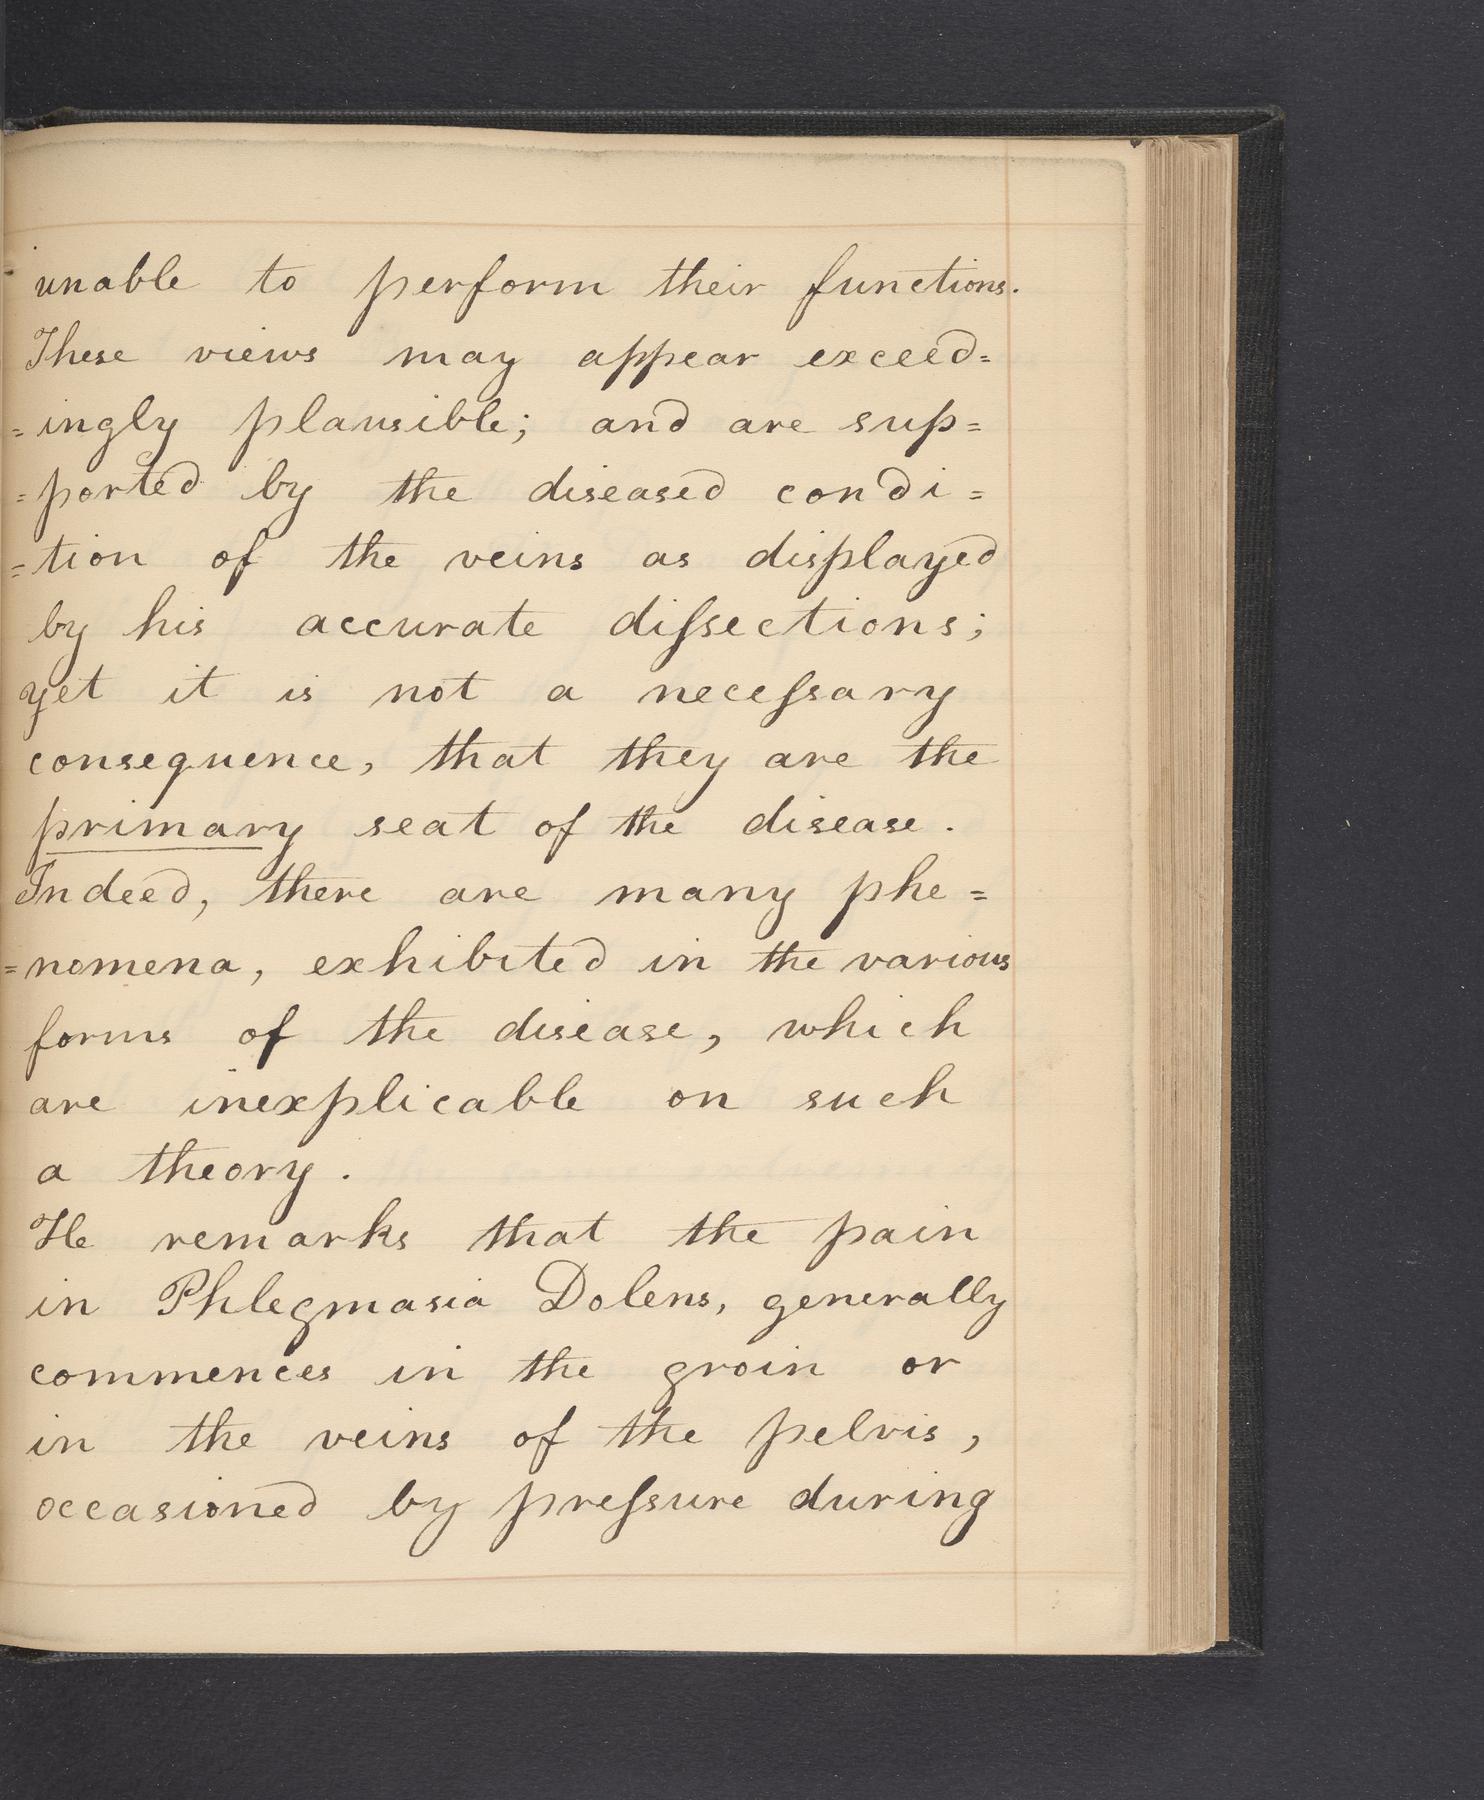 unable to perform their functions.
These views may appear exceed=
=ingly plausible; and are sup=
=ported by the diseased condi=
=tion of the veins as displayed
by his accurate diſsections;
yet it is not a neceſsary
consequence, that they are the
primary seat of the disease.
Indeed, there are many phe=
=nomena, exhibited in the various
forms of the disease, which
are inexplicable on such
a theory.
He remarks that the pain
in Phlegmasia Dolens, generally
commences in the groin or
in the veins of the pelvis,
occasioned by preſsure during